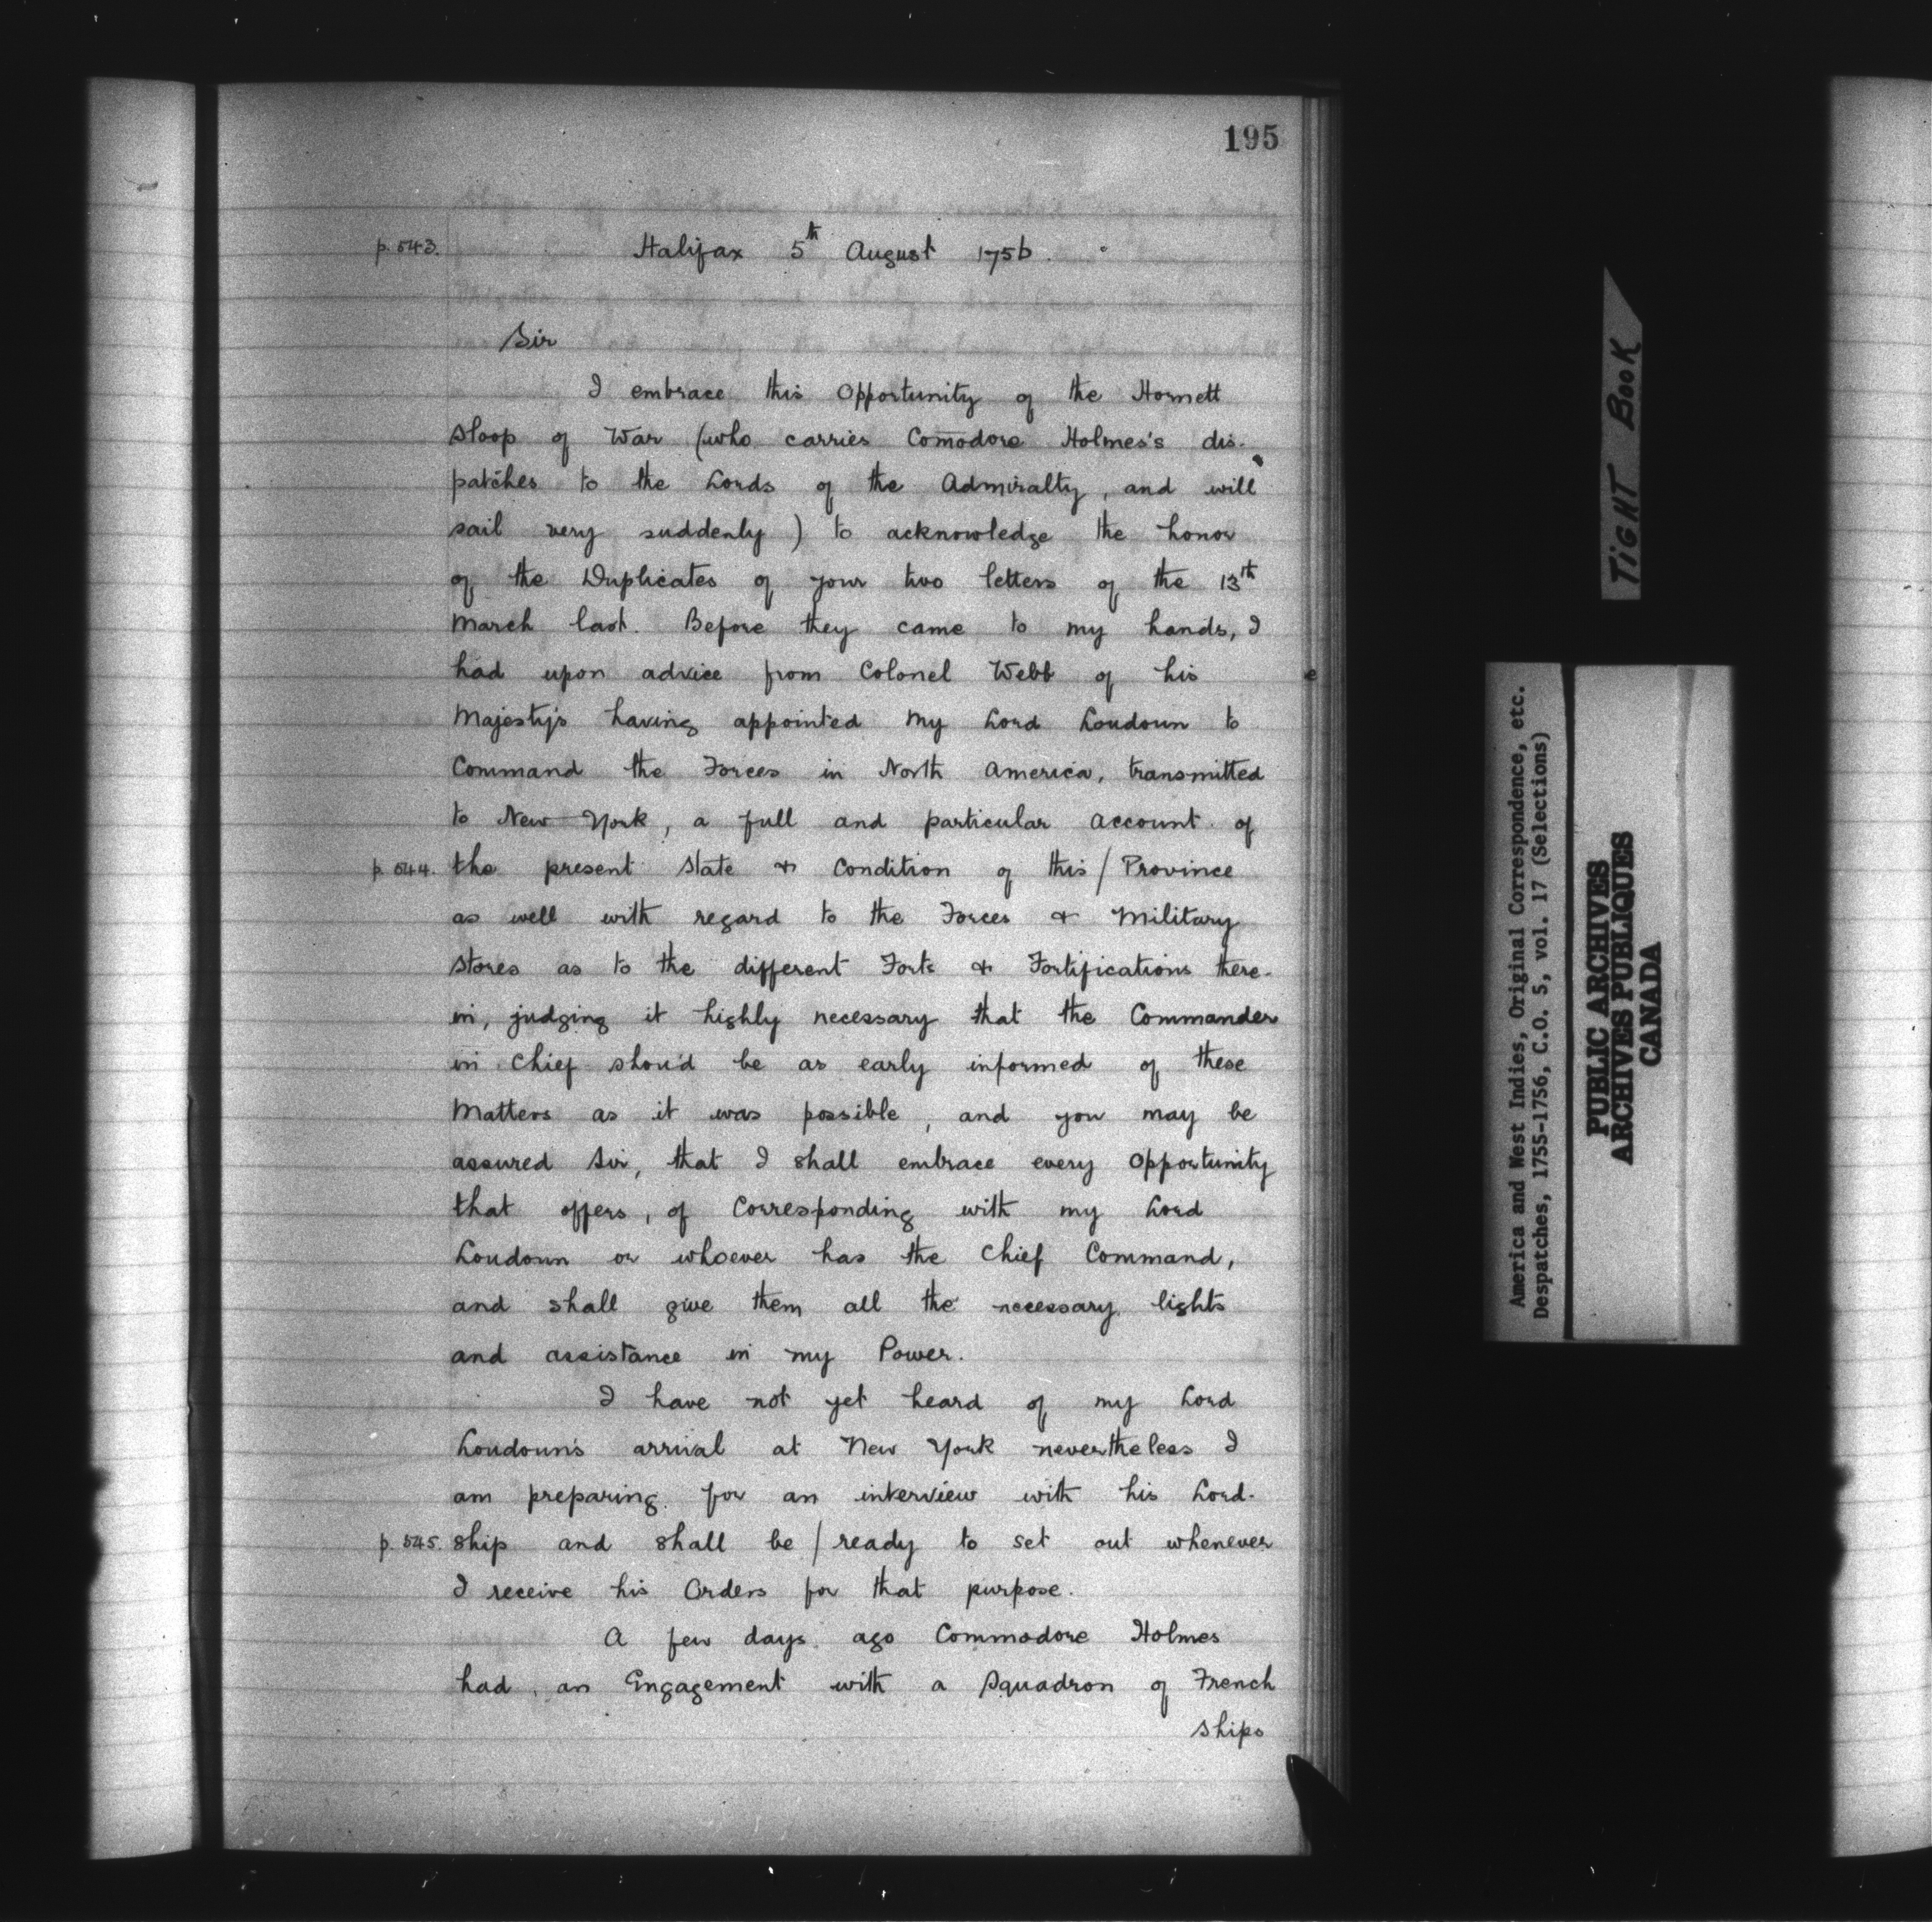 195
p. 543. Halifax 5th August 1756.
Sir
I embrace this Opportunity of the Hornett
Sloop of War (who carries Comodore Holmes's dis-
patches to the Lords of the Admiralty, and will
sail very suddenly) to acknowledge the honor
of the Duplicates of your two letters of the 13th
March last. Before they came to my hands, I
had upon advice from Colonel Webb of his
Majesty's having appointed My Lord Loudoun to
Command the Forces in North America, transmitted
to New York, a full and particular account of
p. 544. the present State & Condition of this / Province
as well with regard to the Forces & Military
Stores as to the different Forts & Fortifications there-
in, judging it highly necessary that the Commander
in Chief shou'd be as early informed of these
Matters as it was possible, and you may be
assured Sir, that I shall embrace every Opportunity
that offers, of Corresponding with my Lord
Loudoun or whoever has the Chief Command,
and shall give them all the necessary lights
and assistance in my Power.
I have not yet heard of my Lord
Loudoun's arrival at New York nevertheless I
am preparing for an interview with his Lord-
p. 545. ship and shall be / ready to set out whenever
I receive his Orders for that purpose.
A few days ago Commodore Holmes
had an Engagement with a Squadron of French
Ships
TIGHT BOOK
America and West Indies, Original Correspondence, etc.
Despatches, 1755-1756, C.O. 5, vol. 17 (Selections)
PUBLIC ARCHIVES
ARCHIVES PUBLIQUES
CANADA